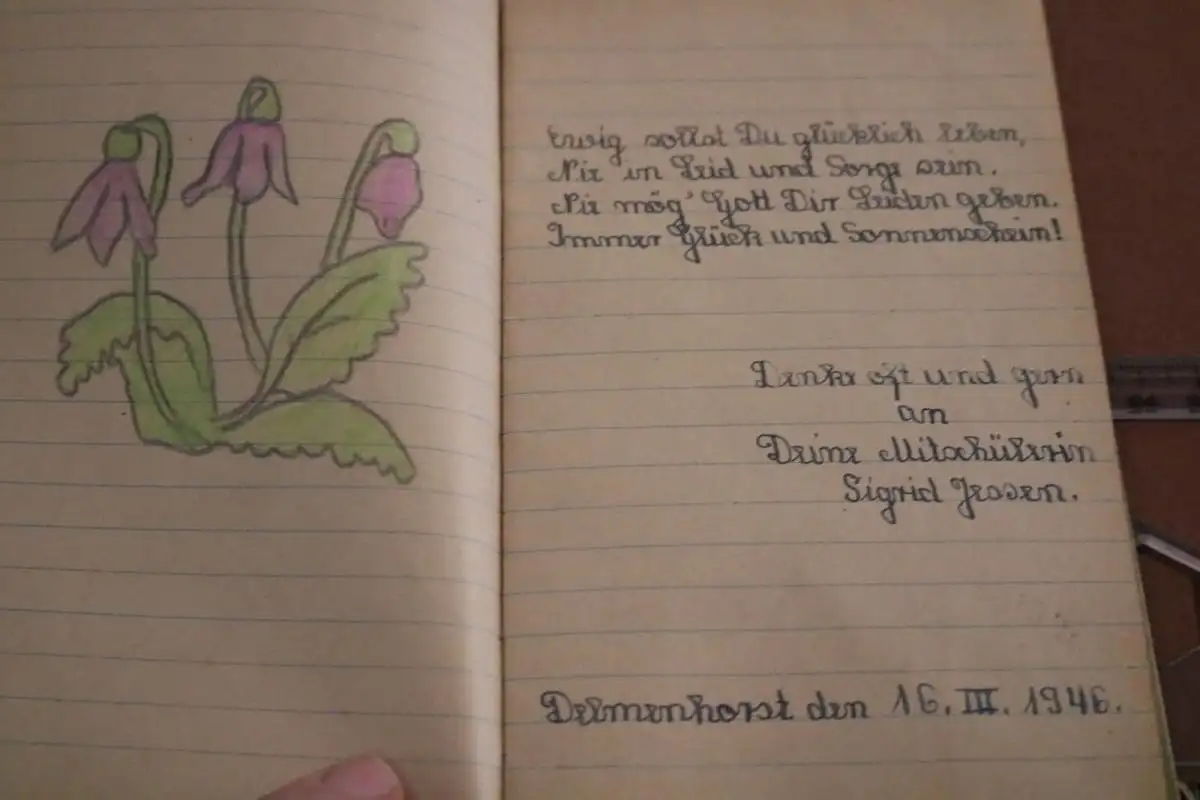 Ewig sollst Du glücklich leben,
Nie in Leid und Sorge sein.
Nie mög' Gott Dir Leiden geben.
Immer Glück und Sonnenschein!
Denke oft und gern
an
Deine Mitschülerin
Sigrid
Delmenhorst den 16. III. 1946.